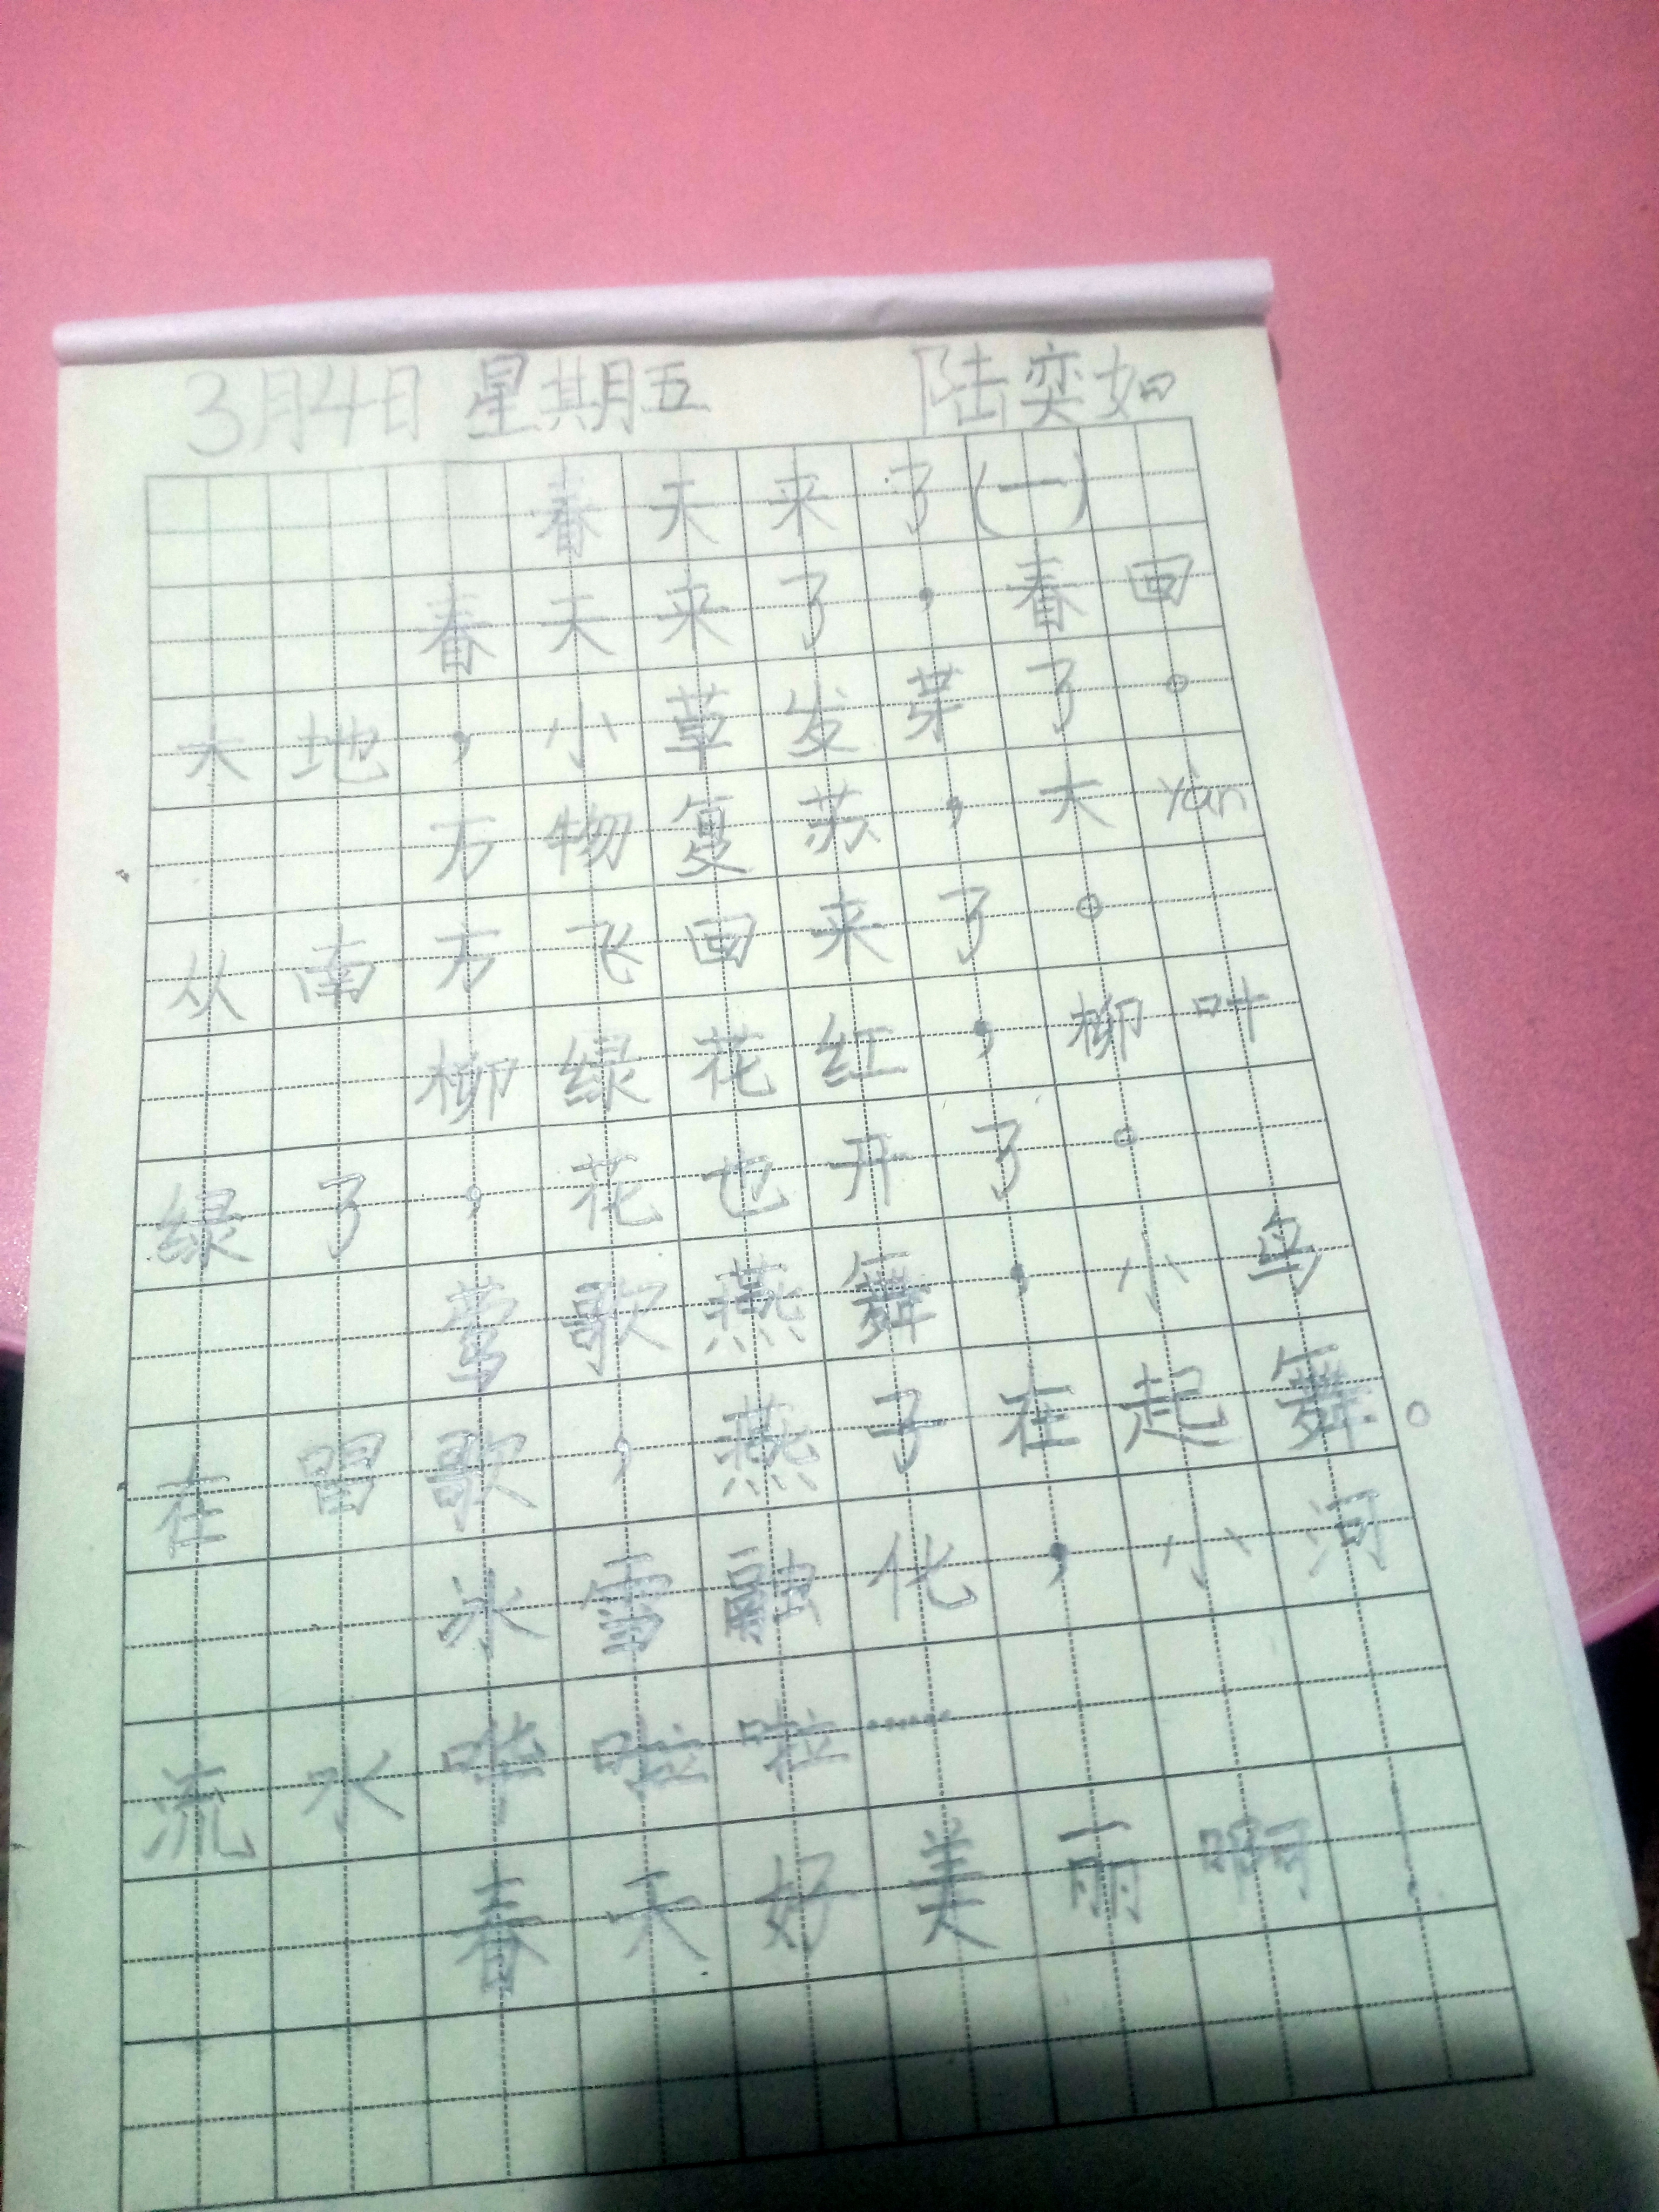 3月4日 星期五 陆奕如
春天来了(一)
春天来了，春回
大地，小草发芽了。
万物复苏，大yàn
从南方飞回来了。
柳绿花红，柳叶
绿了，花也开了。
莺歌燕舞，小鸟
在唱歌，燕子在起舞。
冰雪融化，小河
流水哗啦啦……
春天好美丽啊！